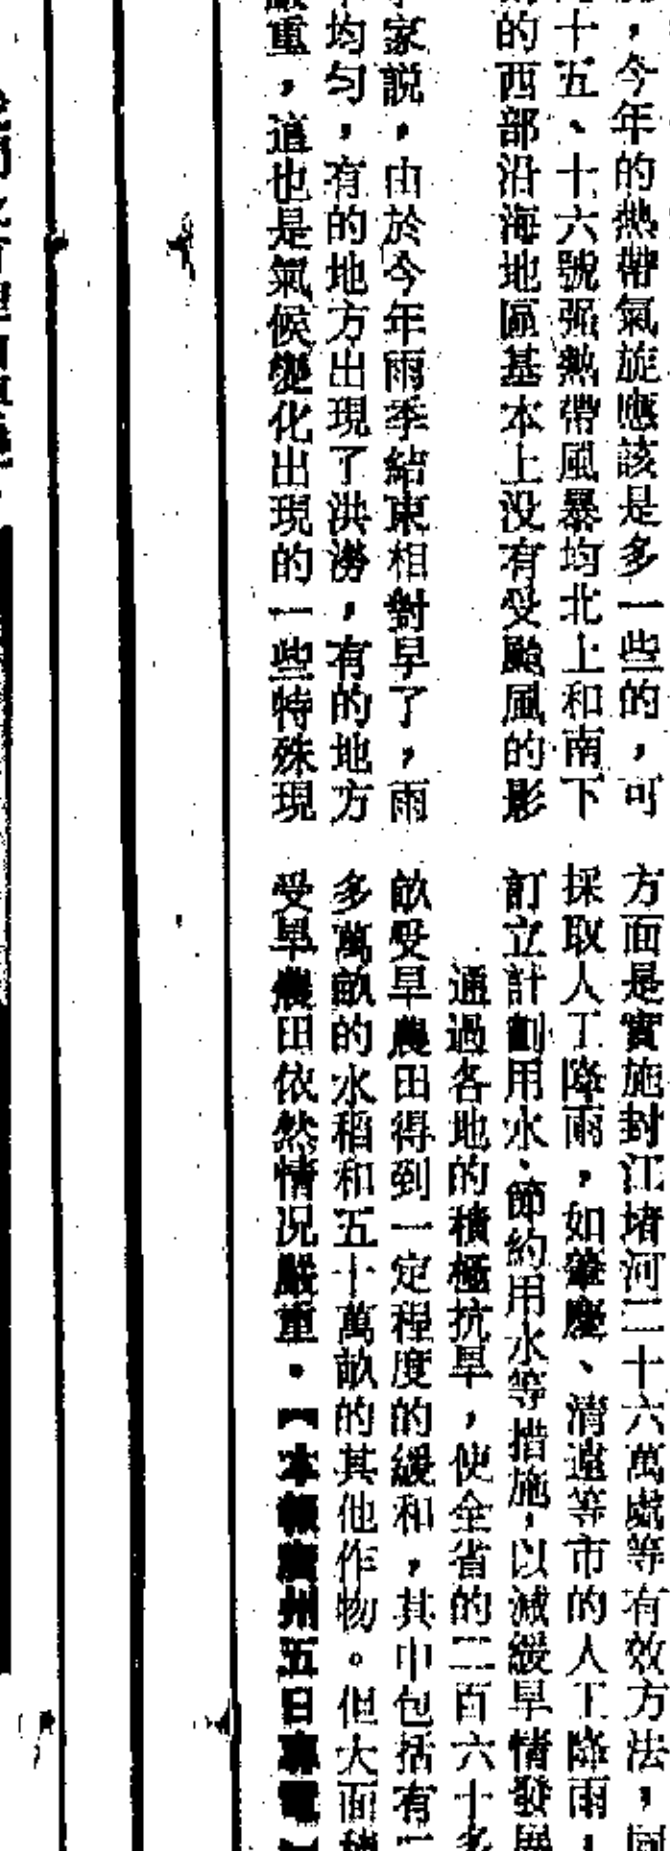 ，今年的熱帶氣旋應該是多一些的，可
十五、十六號強熱帶風暴均北上和南下
的西部沿海地區基本上没有受颱風的影
家説，由於今年雨季結束相對早了，雨
均勻，有的地方出現了洪澇，有的地方
重，這也是氣候變化出現的一些特殊現
方面是實施封江堵河二十六萬處等有效方法，同
採取人工降雨，如肇慶、清遠等市的人工降雨，
訂立計劃用水、節約用水等措施，以減緩旱情發展
通過各地的積極抗旱，使全省的二百六十多
畝受旱農田得到一定程度的緩和，其中包括有
多萬畝的水稻和五十萬畝的其他作物。但大面積
受旱農田依然情況嚴重。【本報廣州五日專電】